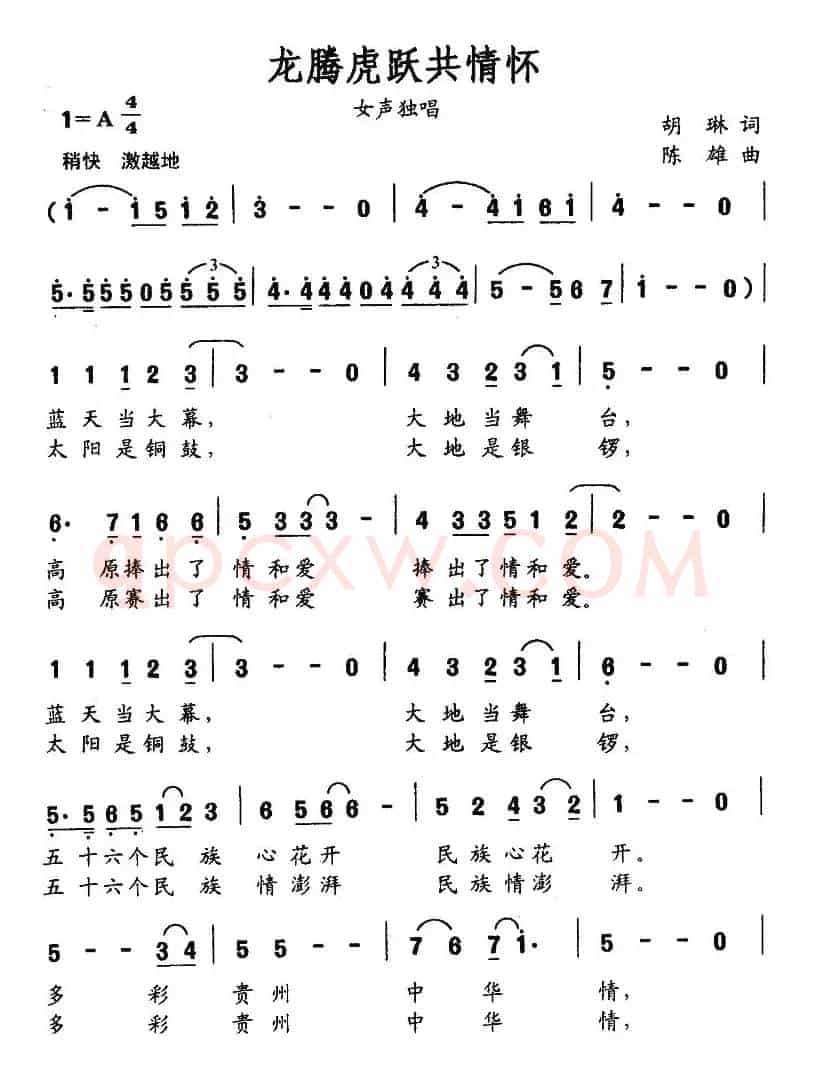 龙腾虎跃共情怀
女声独唱
1=A 4/4
胡 琳 词
稍快 激越地
陈 雄 曲
(1 - 1 5 1 2 | 3 - - 0 | 4 - 4 1 6 1 | 4 - - 0 |
5· 5 5 5 0 5 5 5 5 | 4· 4 4 4 0 4 4 4 4 | 5 - 5 6 7 | 1 - - 0) |
1 1 1 2 3 | 3 - - 0 | 4 3 2 3 1 | 5 - - 0 |
蓝天当大幕, 大地当舞 台,
太阳是铜鼓, 大地是银 锣,
6· 7 1 6 6 | 5 3 3 3 3 - | 4 3 3 5 1 2 | 2 - - 0 |
高 原捧出了 情和爱 捧出了情和爱。
高 原赛出了 情和爱 赛出了情和爱。
qpcxw.com
1 1 1 2 3 | 3 - - 0 | 4 3 2 3 1 | 6 - - 0 |
蓝天当大幕, 大地当舞 台,
太阳是铜鼓, 大地是银 锣,
5· 5 6 5 1 2 3 | 6 5 6 6 - | 5 2 4 3 2 | 1 - - 0 |
五十六个民 族 心花开 民族心花 开。
五十六个民 族 情澎湃 民族情澎 湃。
5 - - 3 4 | 5 5 - - | 7 6 7 1· | 5 - - 0 |
多 彩 贵州 中 华 情,
多 彩 贵州 中 华 情,